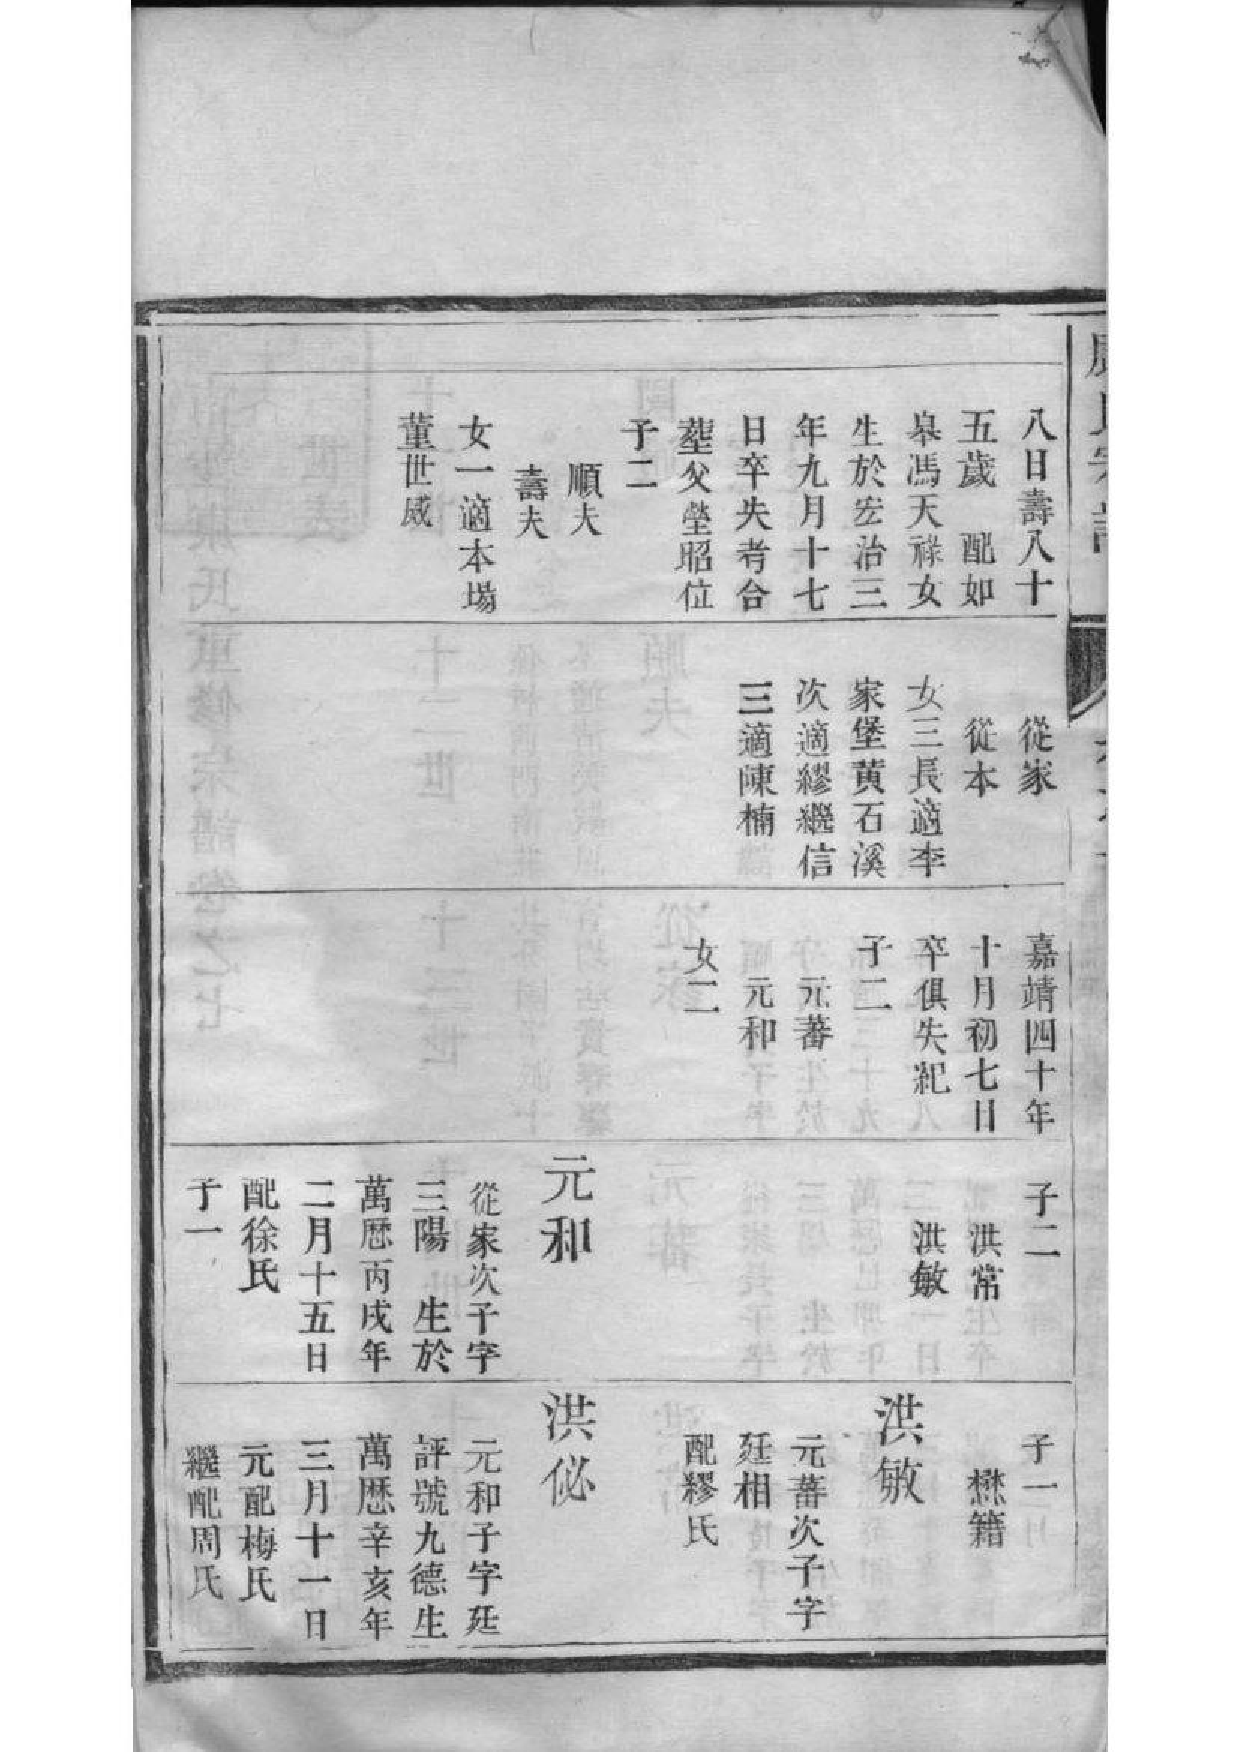 八日壽八十
五歲　配如
皋馮天祿女
生於宏治三
年九月十七
日卒失考合
塟父塋昭位
子二
順夫
壽夫
女一適本場
董世威
從家
從本
女三長適李
家堡黃石溪
次適繆繼信
三適陳楠
嘉靖四十年
十月初七日
卒俱失紀
子二
元蕃
元和
女二
子二
洪常
洪敏
元和
從家次子字
三陽　生於
萬厯丙戌年
二月十五日
配徐氏
子一
子一
懋籍
洪敏
元蕃次子字
廷相
配繆氏
洪佖
元和子字廷
評號九德生
萬厯辛亥年
三月十一日
元配梅氏
繼配周氏